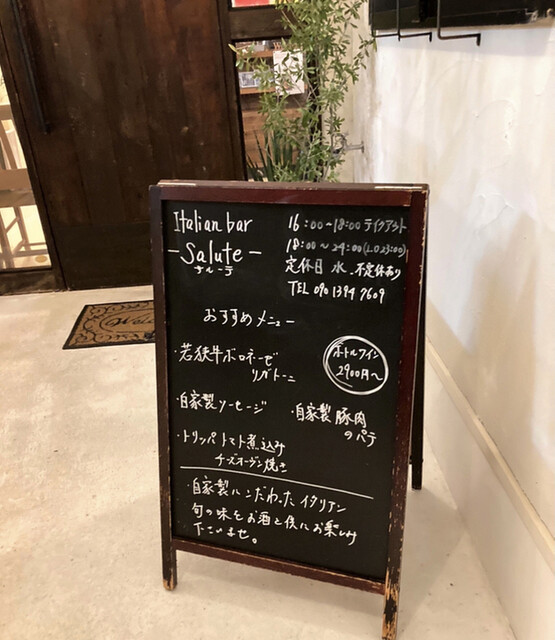 Italian bar
- Salute -
サルーテ
16:00~18:00 テイクアウト
18:00~24:00(L.O 23:00)
定休日 水、不定休あり
TEL 090 1394 7609
おすすめメニュー
・若狭牛ボロネーゼ
リガトーニ
ボトルワイン
2900円~
・自家製ソーセージ
・自家製豚肉
のパテ
・トリッパトマト煮込み
チーズオーブン焼き
・自家製にこだわったイタリアン
旬の味をお酒と供にお楽しみ
下さいませ。